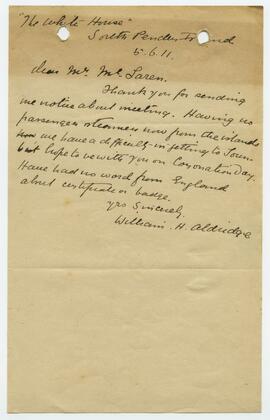 "The White House"
South Pender Island
5.6.11.
Dear Mr. McLaren.
Thank you for sending
me notice about meeting. Having no
passenger steamer now from the islands
we have a difficulty in getting to Town
but hope to be with you on Coronation Day.
Have had no word from England
about certificate or badge.
yrs Sincerely
William. H. Aldridge